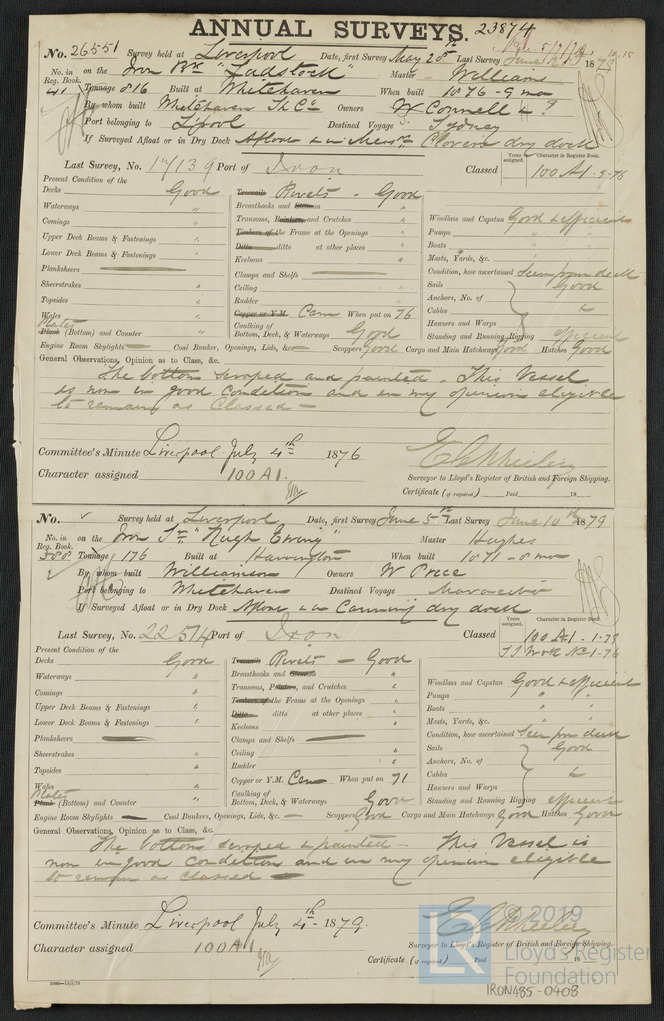 ANNUAL SURVEYS. 23874
No. 26551 Survey held at Liverpool Date, first Survey May 20th Last Survey June 1879
No. in Reg. Book. on the Iron Bk "Ladstock" Master William
41 Tonnage 816 Built at Whitehaven When built 1876 - 9 mo
By whom built Whitehaven Sh Co Owners W Connell &
Port belonging to L'pool Destined Voyage Sydney
If Surveyed Afloat or in Dry Dock Afloat & in Mess. Clover's dry dock
Last Survey, No. 17139 Port of Iron Classed Years assigned. Character in Register Book. 100 A1 - 9-76
Present Condition of the
Decks Good
Waterways "
Comings "
Upper Deck Beams & Fastenings "
Lower Deck Beams & Fastenings "
Planksheers
Sheerstrakes "
Topsides "
Wales "
Plates Plank (Bottom) and Counter "
Treenails Rivets - Good
Breasthooks and Stemson "
Transoms, Pointers, and Crutches "
Timbers of the Frame at the Openings "
Ditto ditto at other places "
Keelsons "
Clamps and Shelfs
Ceiling "
Rudder "
Copper or Y.M. Cem When put on 76
Caulking of Bottom, Deck, & Waterways Good
Windlass and Capstan Good & efficient
Pumps "
Boats "
Masts, Yards, &c. "
Condition, how ascertained Seen from deck
Sails Good
Anchors, No. of
Cables "
Hawsers and Warps
Standing and Running Rigging efficient
Engine Room Skylights Coal Bunker, Openings, Lids, &c. Scuppers Good Cargo and Main Hatchways Good Hatches Good
General Observations, Opinion as to Class, &c.
The bottom scraped and painted. This Vessel
is now in good condition and in my opinion eligible
to remain as Classed -
Committee's Minute Liverpool July 4th 1876
Character assigned 100 A1.
Surveyor to Lloyd's Register of British and Foreign Shipping.
Certificate (if required) Paid 18
No. Survey held at Liverpool Date, first Survey June 5th Last Survey June 10th 1879
No. in Reg. Book. on the Iron Sr "Hugh Ewing" Master Hughes
588 Tonnage 176 Built at Harrington When built 1871 - 8 mo
By whom built Williamson Owners W Price
Port belonging to Whitehaven Destined Voyage Maracaibo
If Surveyed Afloat or in Dry Dock Afloat & in Canning dry dock
Last Survey, No. 22514 Port of Iron Classed Years assigned. Character in Register Book. 100 A1 - 1-79
1-76
Present Condition of the
Decks Good
Waterways "
Comings "
Upper Deck Beams & Fastenings "
Lower Deck Beams & Fastenings "
Planksheers
Sheerstrakes "
Topsides "
Wales "
Plates Plank (Bottom) and Counter "
Treenails Rivets - Good
Breasthooks and Stemson "
Transoms, Pointers, and Crutches "
Timbers of the Frame at the Openings "
Ditto ditto at other places "
Keelsons "
Clamps and Shelfs
Ceiling "
Rudder "
Copper or Y.M. Cem When put on 71
Caulking of Bottom, Deck, & Waterways Good
Windlass and Capstan Good & efficient
Pumps "
Boats "
Masts, Yards, &c. "
Condition, how ascertained Seen from deck
Sails Good
Anchors, No. of
Cables "
Hawsers and Warps
Standing and Running Rigging efficient
Engine Room Skylights Coal Bunkers, Openings, Lids, &c. Scuppers Good Cargo and Main Hatchways Good Hatches Good
General Observations, Opinion as to Class, &c.
The bottom scraped & painted - This Vessel is
now in good condition and in my opinion eligible
to remain as classed
Committee's Minute Liverpool July 4th 1879.
Character assigned 100 A1
Surveyor to Lloyd's Register of British and Foreign Shipping.
Certificate (if required) Paid 18
© 2019
Lloyd's Register
Foundation
IRON485-0408